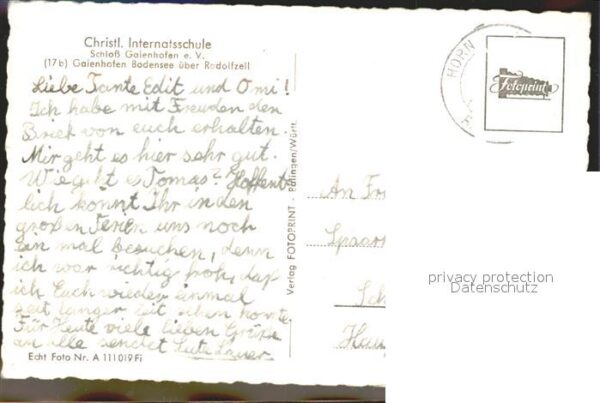 Christl. Internatsschule
Schloß Gaienhofen e. V.
(17b) Gaienhofen Bodensee über Radolfzell
Liebe Tante Edit und Omi!
Ich habe mit Freuden den
Brief von euch erhalten.
Mir geht es hier sehr gut.
Wie geht es Tomas? Hoffent
lich könnt Ihr in den
großen Ferien uns noch
ein mal besuchen, denn
ich war richtig froh, daß
ich Euch wieder einmal
seit langer Zeit sehen konnte.
Für Heute viele lieben Grüße
an alle sendet
Echt Foto Nr. A 111019 Fi
Verlag FOTOPRINT · Balingen/Württ.
HORN
Fotoprint
An Fr
Spaar
Sch
Hau
privacy protection
Datenschutz